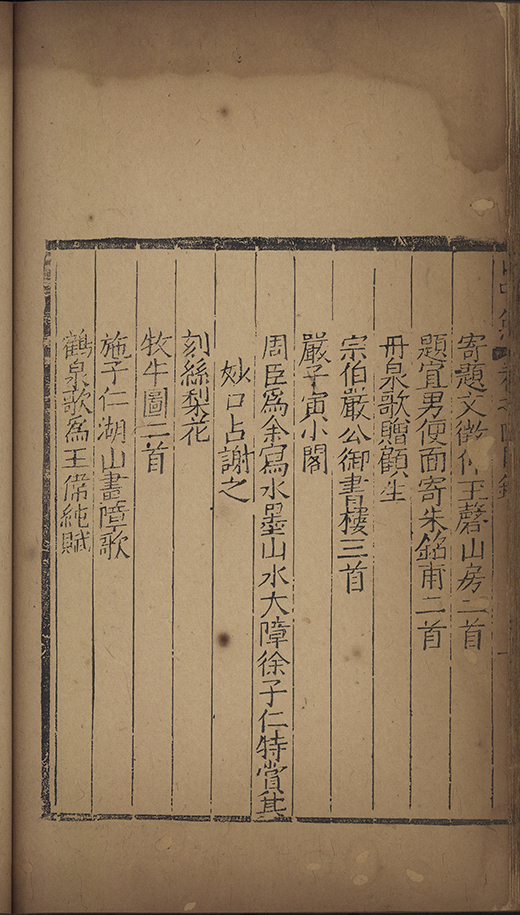 寄題文徵仲玉磬山房二首
題宜男便面寄朱銘甫二首
丹泉歌贈顧生
宗伯嚴公御書樓三首
嚴子寅小閣
周臣為余寫水墨山水大障徐子仁特賞其
妙口占謝之
刻絲梨花
牧牛圖二首
施子仁湖山畫障歌
鶴泉歌為王常純賦